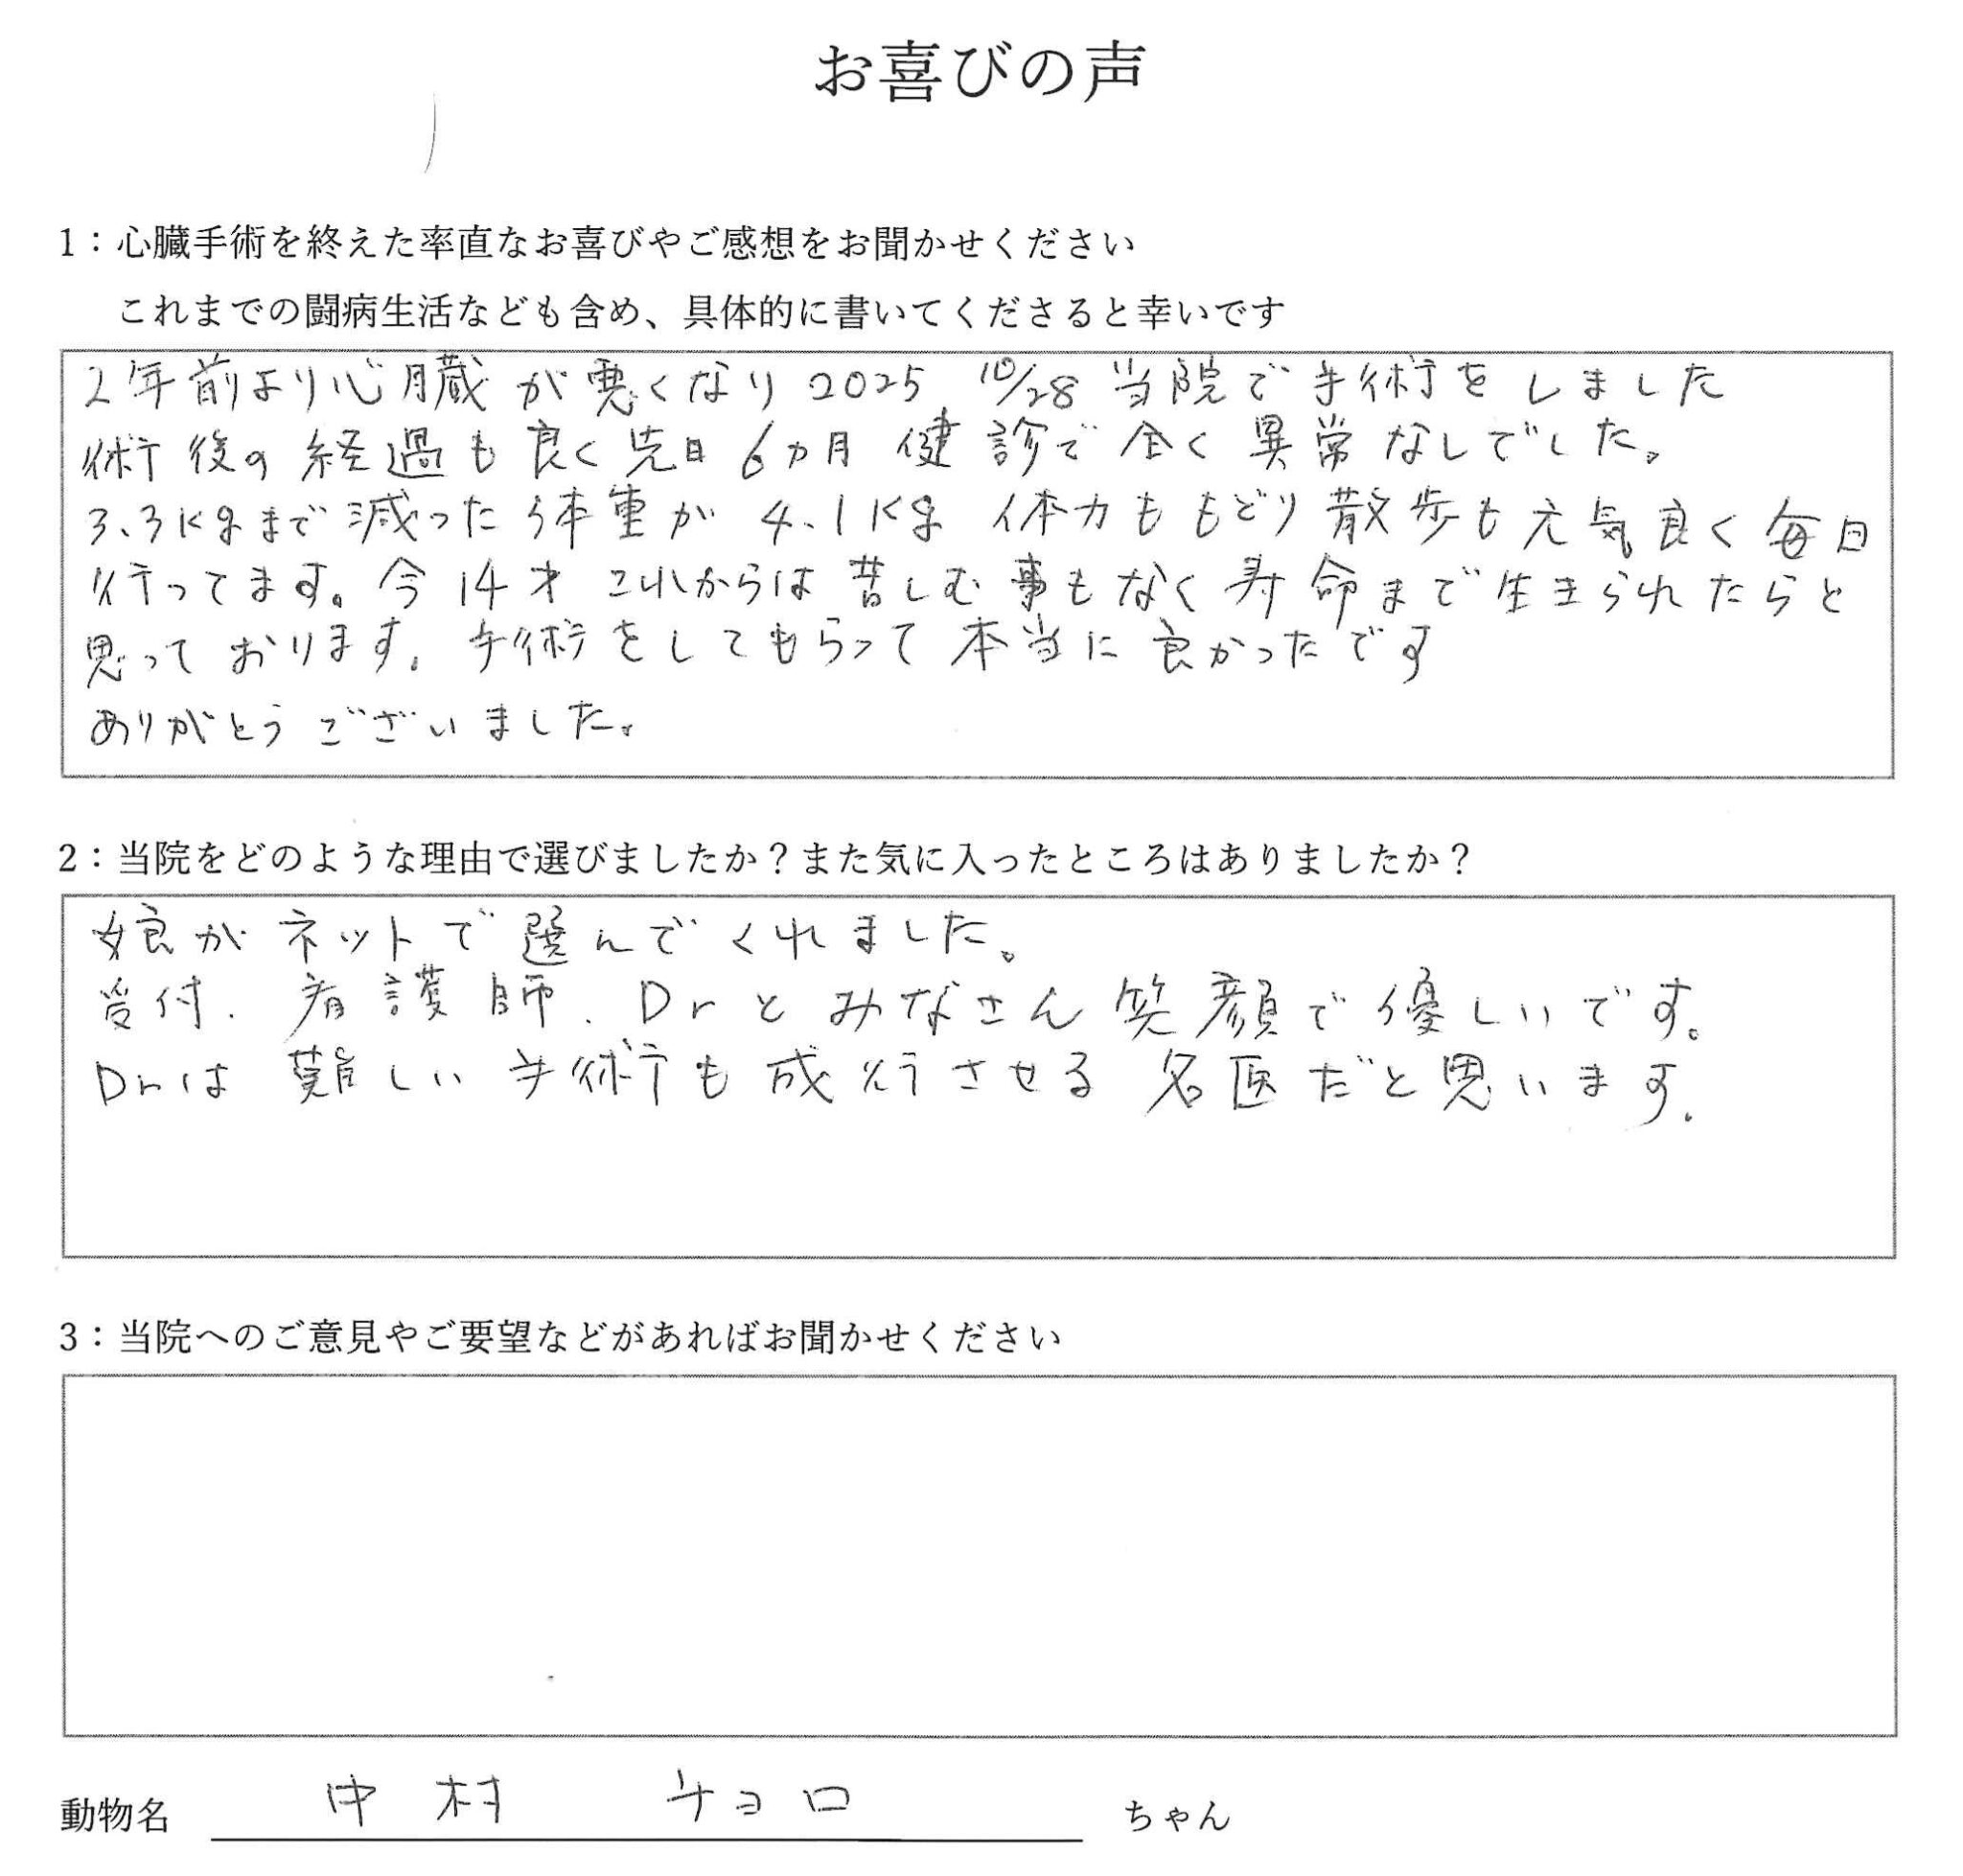 お喜びの声
1：心臓手術を終えた率直なお喜びやご感想をお聞かせください
これまでの闘病生活なども含め、具体的に書いてくださると幸いです
2年前より心臓が悪くなり2025 10/28 当院で手術をしました
術後の経過も良く先日6カ月健診で全く異常なしでした。
3.3kgまで減った体重が4.1kg 体力ももどり散歩も元気良く毎日
行ってます。今14才これからは苦しむ事もなく寿命まで生きられたらと
思っております。手術をしてもらって本当に良かったです
ありがとうございました。
2：当院をどのような理由で選びましたか？また気に入ったところはありましたか？
娘がネットで選んでくれました。
受付、看護師、Drとみなさん笑顔で優しいです。
Drは難しい手術も成行させる名医だと思います。
3：当院へのご意見やご要望などがあればお聞かせください
動物名 中村 チョロ ちゃん